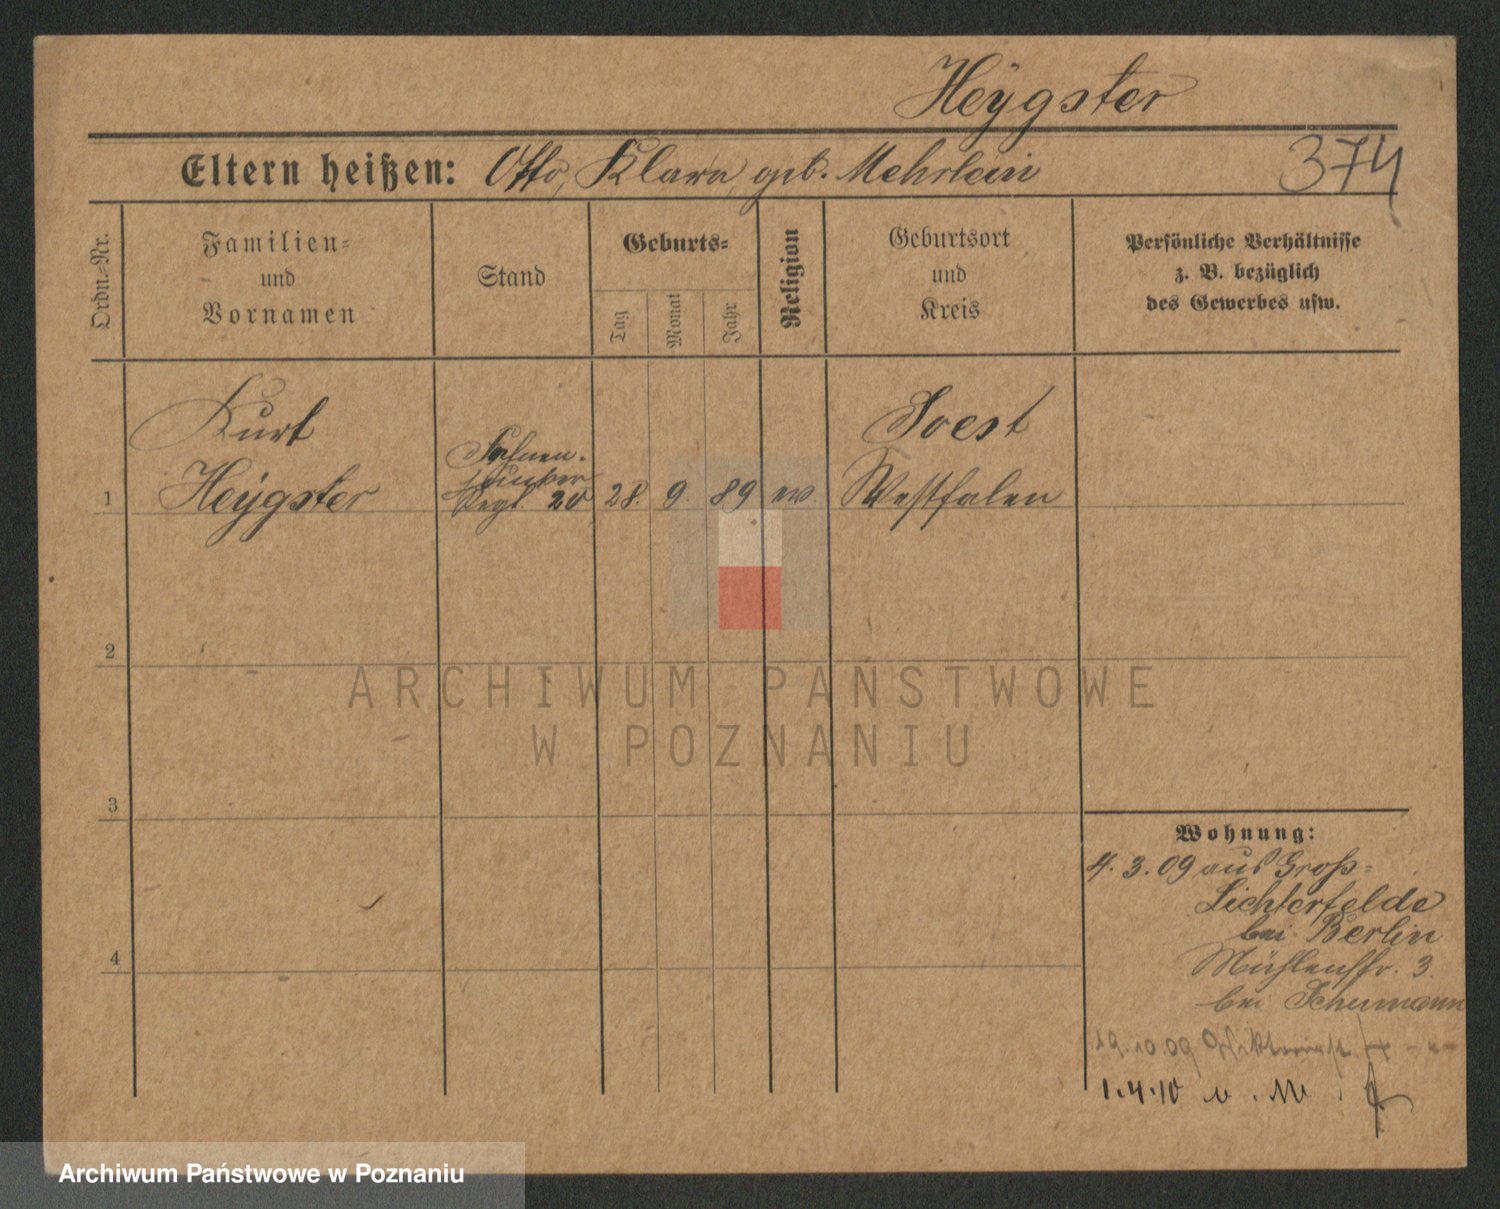 Heÿgster
Eltern heißen: Otto, Klara geb. Mehrlein
374
Ordn.-Nr.
Familien-
und
Vornamen
Stand
Geburts-
Tag
Monat
Jahr
Religion
Geburtsort
und
Kreis
Persönliche Verhältnisse
z. B. bezüglich
des Gewerbes usw.
1
Kurt
Heÿgster
Fahnen-
junker
Regt. 20
28. 9. 89 ev.
Soest
Westfalen
2
3
4
Wohnung:
4. 3. 09 aus Groß-
Lichterfelde
bei Berlin
Mühlenstr. 3.
bei Schumann
19.10.09
1.4.10
ARCHIWUM PAŃSTWOWE
W POZNANIU
Archiwum Państwowe w Poznaniu